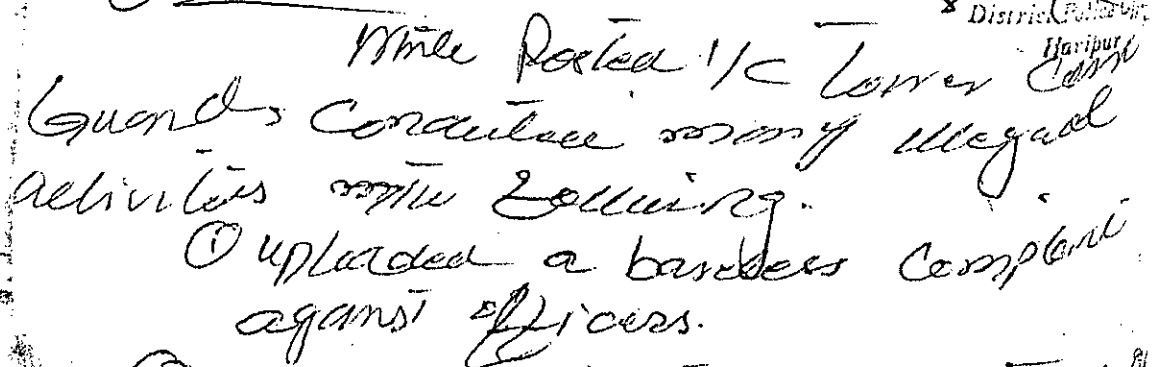 District Police Off
Haripur
While Posted I/C Tower Cam
Guards Conducted many illegal
activities with following.
① uploaded a baseless complaint
against officers.